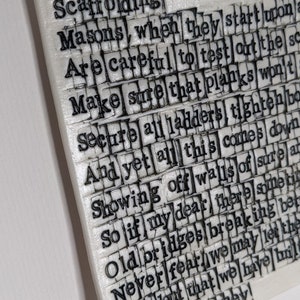 Scaffolding
Masons, when they start upon
Are careful to test out the sc
Make sure that planks won't
Secure all ladders, tighten bo
And yet all this comes down
Showing off walls of sure an
So if, my dear, there some
Old bridges breaking be
Never fear, we may let th
that we have